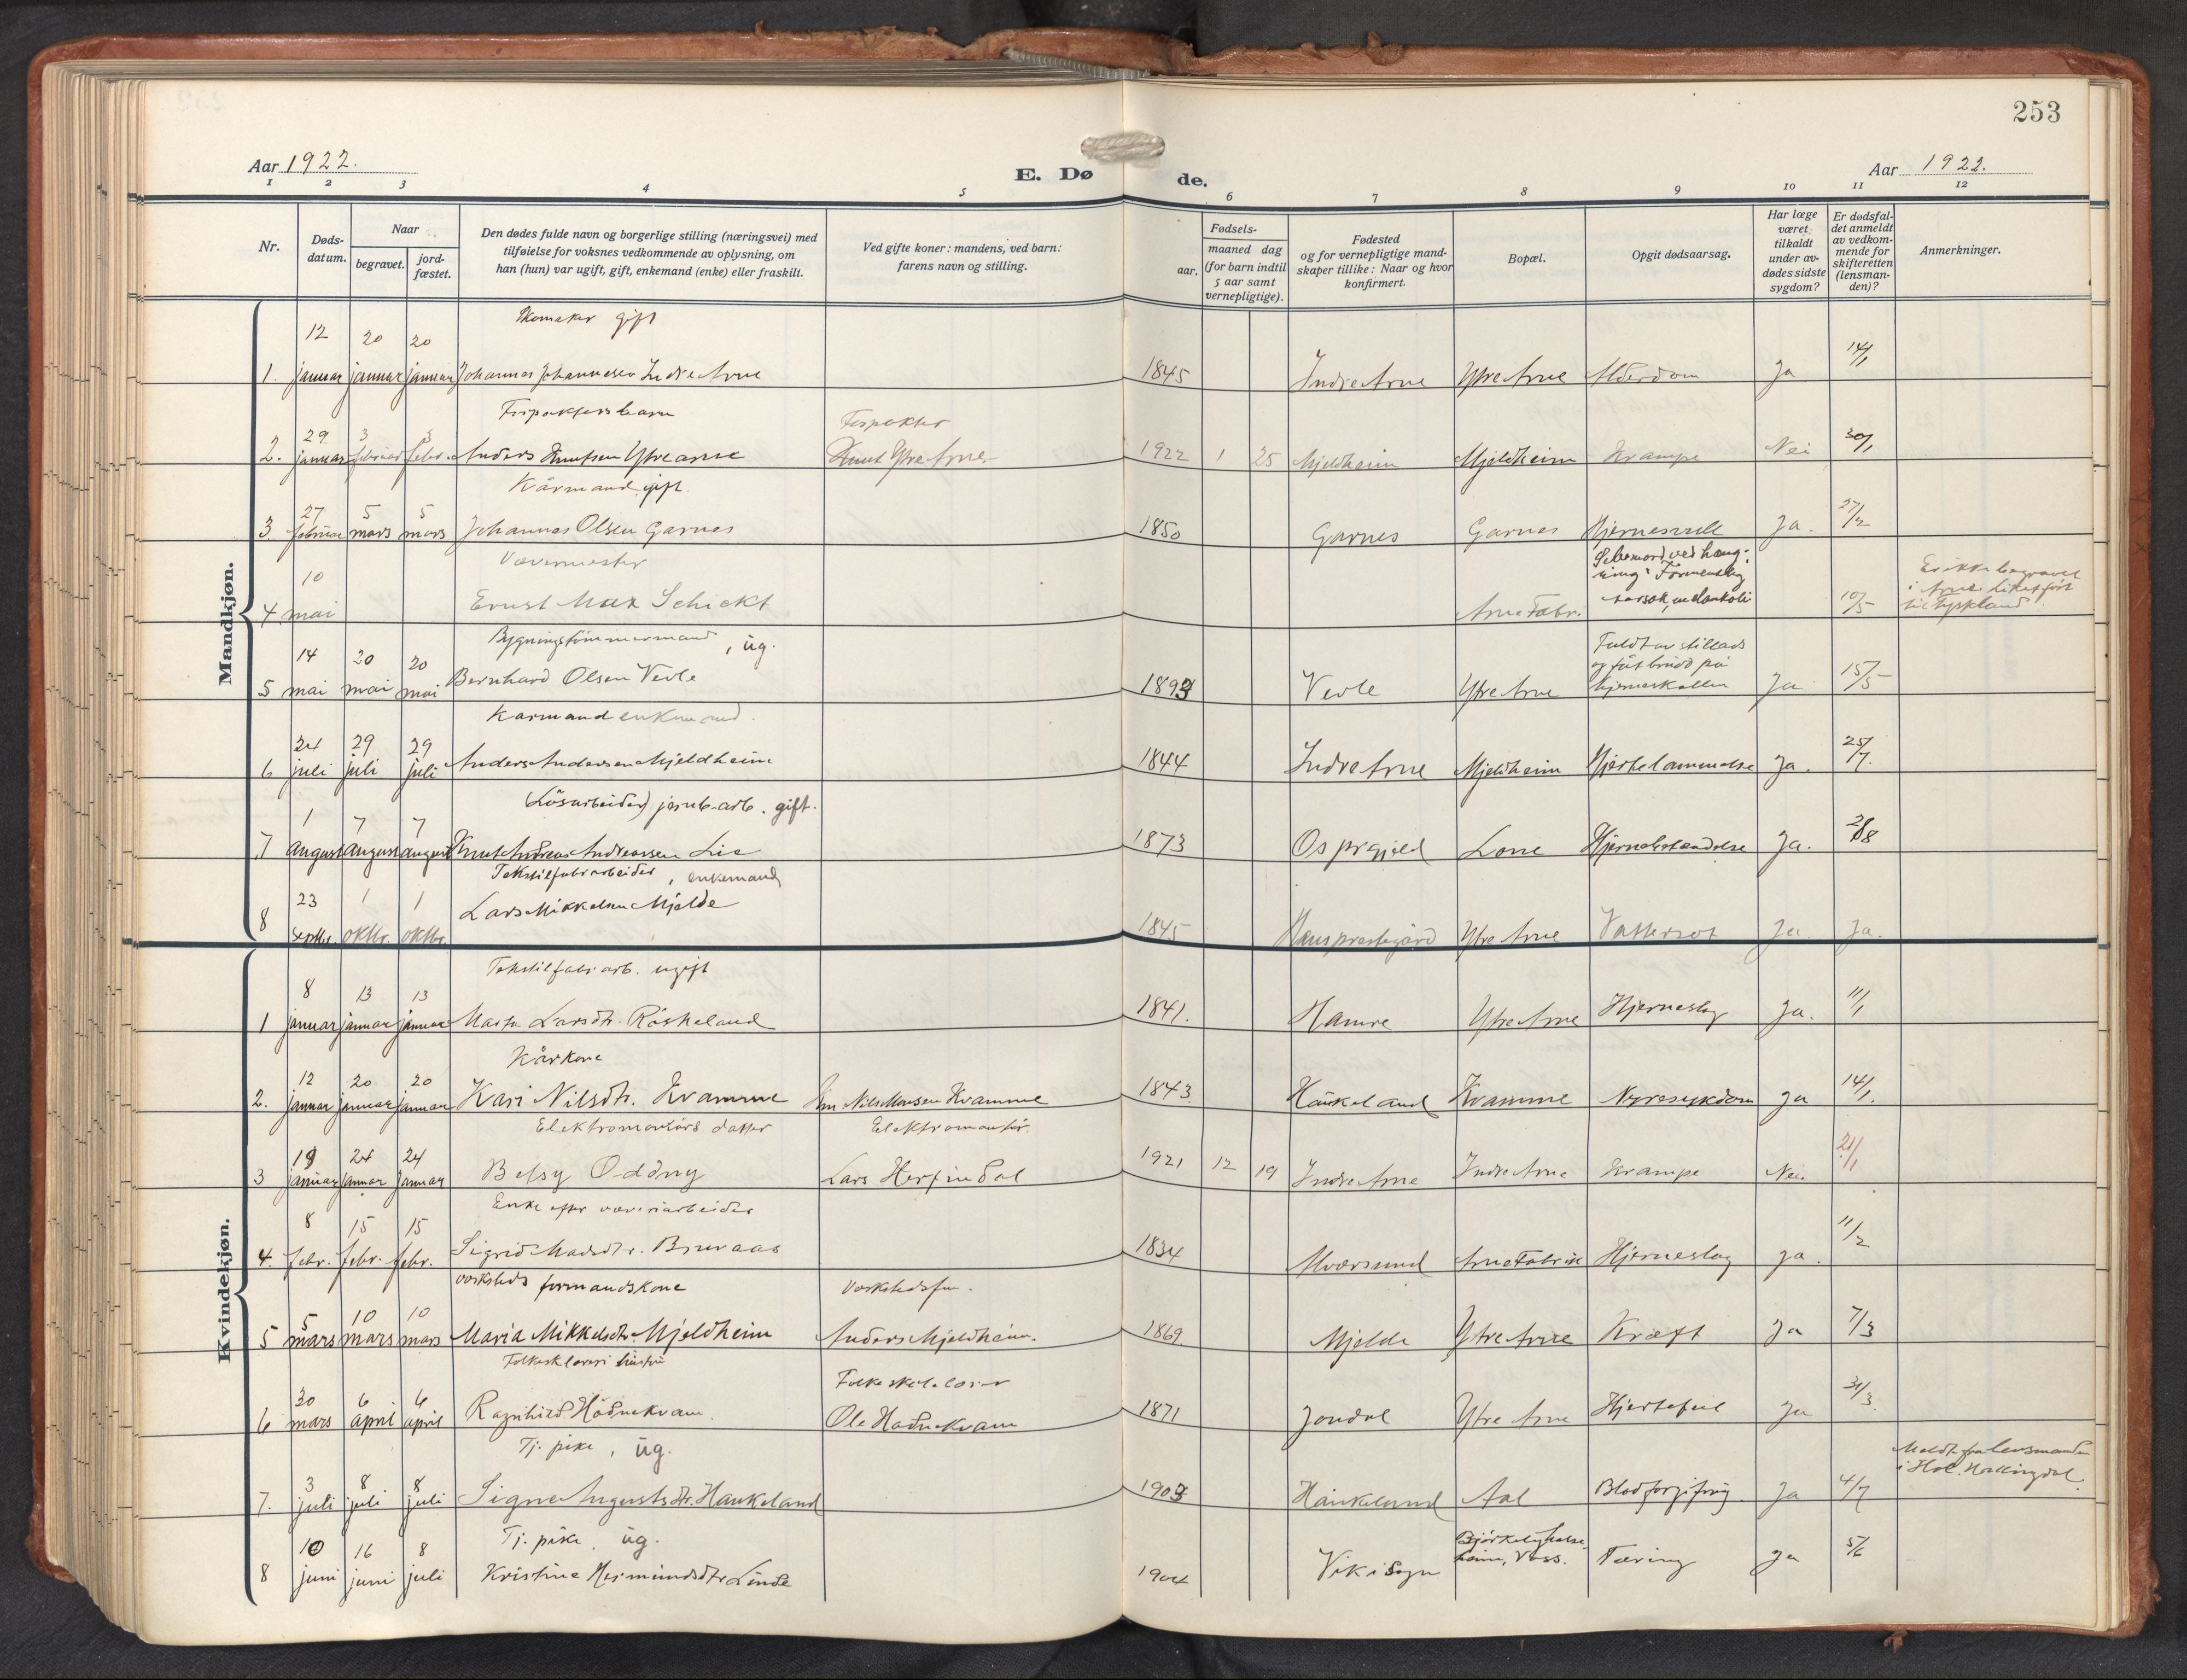 253
Aar 1922.
E. Døde.
Aar 1922.
1 2 3 4 5 6 7 8 9 10 11 12
Nr.
Døds-
datum.
Naar
begravet.
jord-
fæstet.
Den dødes fulde navn og borgerlige stilling (næringsvei) med
tilføielse for voksnes vedkommende av oplysning, om
han (hun) var ugift, gift, enkemand (enke) eller fraskilt.
Ved gifte koner: mandens, ved barn:
farens navn og stilling.
Fødsels-
aar.
maaned dag
(for barn indtil
5 aar samt
vernepligtige).
Fødested
og for vernepligtige mand-
skaper tillike: Naar og hvor
konfirmert.
Bopæl.
Opgit dødsaarsag.
Har læge
været
tilkaldt
under av-
dødes sidste
sygdom?
Er dødsfal-
det anmeldt
av vedkom-
mende for
skifteretten
(lensman-
den)?
Anmerkninger.
Mandkjøn.
Skomaker gift
12 20 20
1. januar januar januar Johannes Johannesen Indre Arne 1845 Indre Arne Ytre Arne Alderdom Ja 14/1
Forpakters barn
Forpakter
29 3 3
2. januar februar febr. Anders Knutsen Ytre Arne Knut Ytre Arne 1922 1 25 Mjeldheim Mjeldheim Krampe Nei 30/1
Kårmand gift
27 5 5
3 februar mars mars Johannes Olsen Garnes 1850 Garnes Garnes Ja. 27/2
Vævermester
Selvmord ved hæng-
ning. Formentlig
aarsak, melankoli
Er ikke begravet
i Arne. Liket ført
til Tyskland
10
4 mai Ernst Max Schickt Arne Fabr. 10/5
Bygningstömmermand, ug.
Faldt av stillads
og fåt brudd på
hjerneskallen
14 20 20
5 mai mai mai Bernhard Olsen Vevle 1893 Vevle Ytre Arne Ja 15/5
Karmand enkemand.
24 29 29
6 juli juli juli Anders Andersen Mjeldheim 1844 Indre Arne Mjeldheim Hjertelammelse Ja. 25/7.
(Lösarbeider) jernb.arb. gift.
1 7 7
7 august august august Knut Andreas Andreassen Lie 1873 Os prgjeld Lone Hjernebetændelse Ja. 2/8
Tekstilfabrarbeider, enkemand
23 1 1
8 septbr. oktbr. oktbr. Lars Mikkelsen Mjelde 1845 Haus prestegård Ytre Arne Vattersot Ja Ja.
Kvindekjøn.
Tekstilfabr.arb. ugift
8 13 13
1 januar januar januar Marta Larsdtr. Röskeland 1841. Hamre Ytre Arne Hjerneslag Ja. 11/1
Kårkone
12 20 20
2. januar januar januar Kari Nilsdtr. Kvamme Nils Monsen Kvamme 1843 Haukeland Kvamme Nyresykdom Ja 14/1.
Elektromontörs datter
Elektromontör.
19 24 24
3 januar januar januar Betsy Oddny Lars Herfindal 1921 12 19 Indre Arne Indre Arne Krampe Nei. 21/1
Enke efter væveriarbeider
8 15 15
4. febr. febr. febr. Sigrid Madsdtr. Bruraas 1834 Alværsund Arne Fabrik Hjerneslag Ja. 11/2
verksteds formandskone
Verkstedsfm.
5 10 10
5 mars mars mars Maria Mikkelsdtr. Mjeldheim Anders Mjeldheim. 1869. Mjelde Ytre Arne Kræft Ja 7/3
Folkesk læreri hustru
Folkeskolelærer
30 6 6
6 mars april april Ragnhild Hödnekvam Ole Hodnekvam 1871 Jondal Ytre Arne Hjertefeil Ja 31/3.
Tj. pike, ug.
Meldt fra lensmanden
i Hol. Hallingdal.
3 8 8
7. juli juli juli Signe Augustsdtr. Haukeland 1903 Haukeland Aal Blodforgiftning. Ja 4/7
Tj. pike, ug.
Björkelyhelse-
heim, Voss.
10 16 8
8 juni juni juli Kristine Hermundsdtr Linde 1904 Vik i Sogn Tæring Ja 5/6